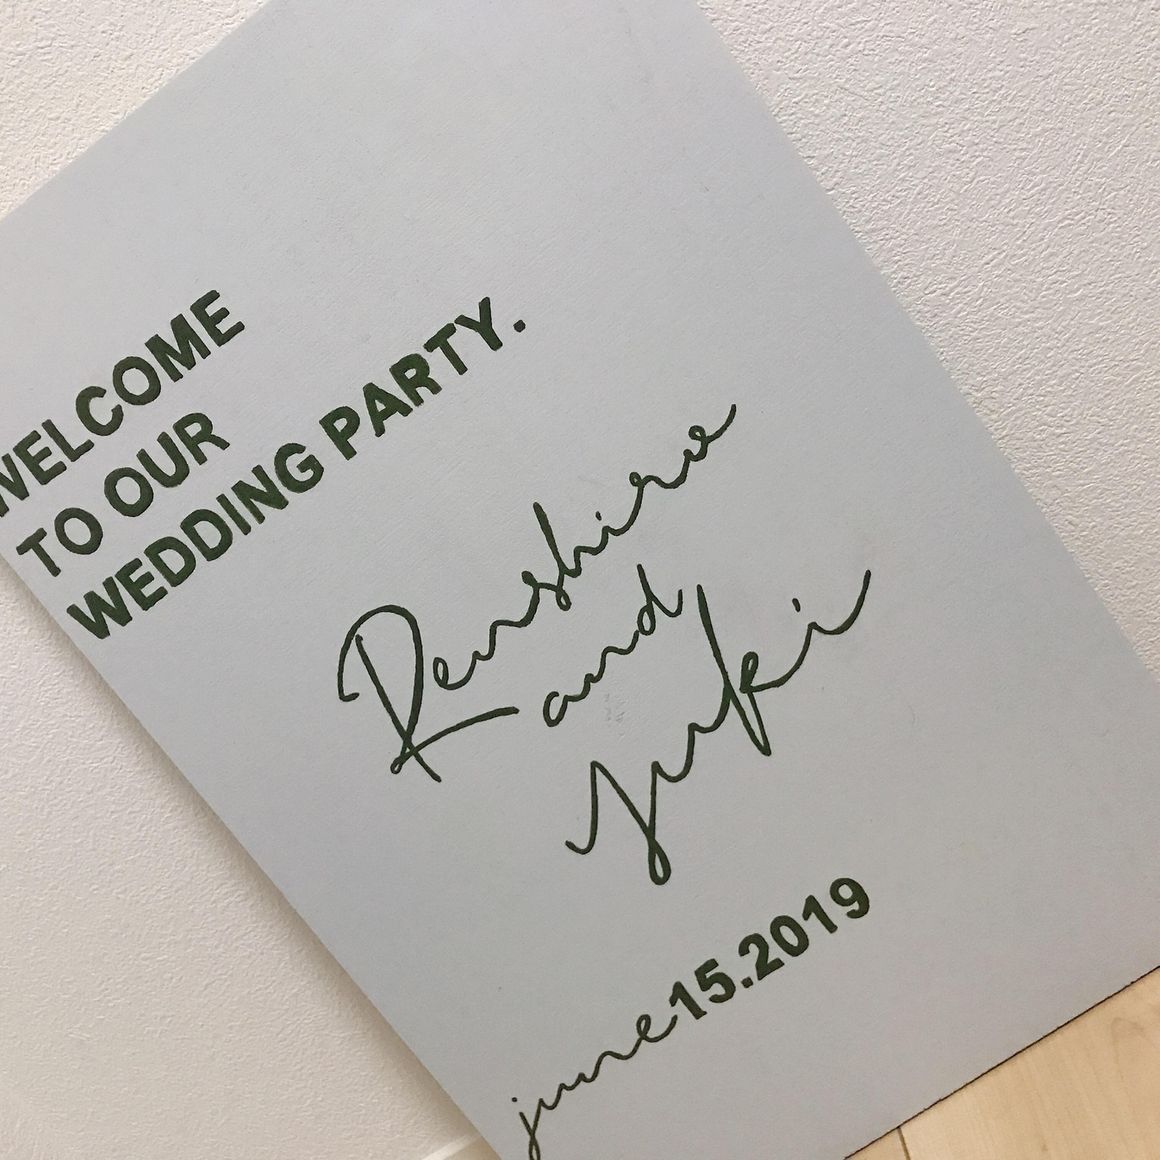 WELCOME
TO OUR
WEDDING PARTY.
Renshiro
and
yuki
june 15.2019